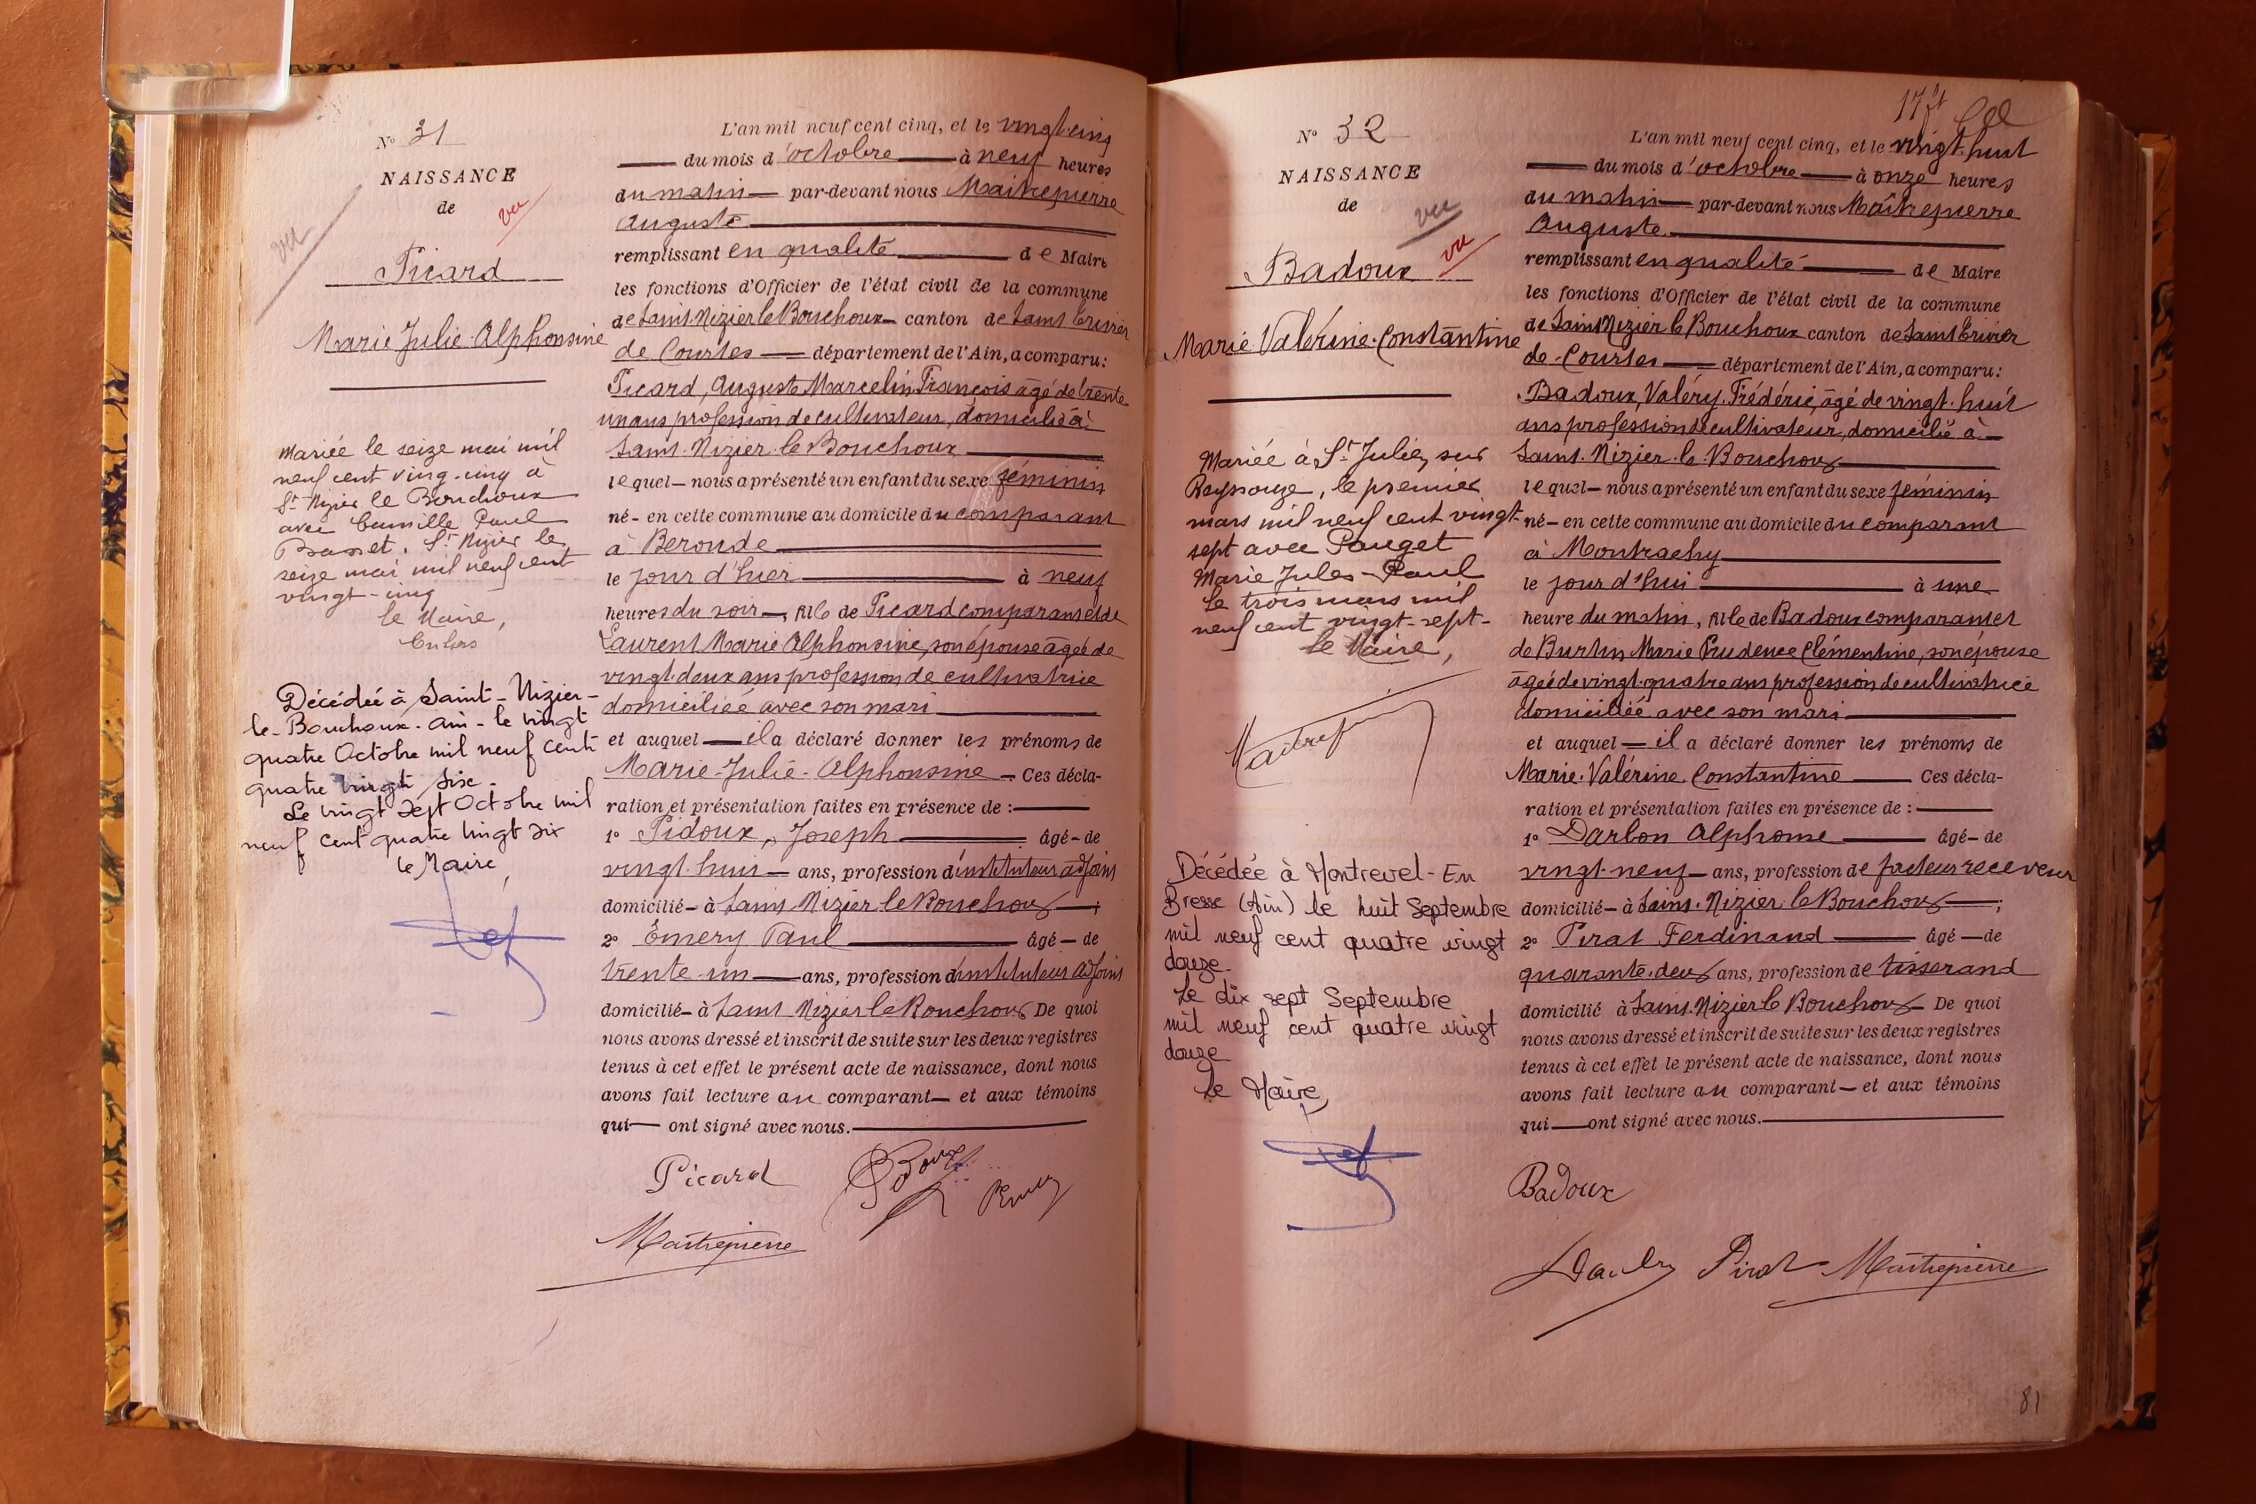 N° 31
NAISSANCE
de
vu
vu
Picard
Marie Julie Alphonsine
Mariée le seize mai mil
neuf cent vingt-cinq à
St Nizier le Bouchoux
avec Camille Paul
St Nizier le
seize mai mil neuf cent
vingt-cinq
le Maire,
Décédée à Saint-Nizier-
le-Bouchoux-Ain-le vingt
quatre Octobre mil neuf cent
quatre vingt six.
Le vingt sept Octobre mil
neuf cent quatre vingt six
le Maire,
L'an mil neuf cent cinq, et le vingt cinq
du mois d'octobre à neuf heures
du matin par-devant nous Maitrepierre
Auguste
remplissant en qualité de Maire
les fonctions d'Officier de l'état civil de la commune
de Saint Nizier le Bouchoux canton de Saint Trivier
de Courtes département de l'Ain, a comparu:
Picard, Auguste Marcelin François âgé de trente
un ans profession de cultivateur, domicilié à
Saint-Nizier le Bouchoux
lequel nous a présenté un enfant du sexe féminin
né en cette commune au domicile du comparant
à Beronde
le jour d'hier à neuf
heures du soir, fille de Picard comparant et de
Laurent Marie Alphonsine, son épouse âgée de
vingt-deux ans profession de cultivatrice
domiciliée avec son mari
et auquel il a déclaré donner les prénoms de
Marie-Julie-Alphonsine Ces décla-
ration et présentation faites en présence de :
1° Pidoux, Joseph âgé de
vingt huit ans, profession d'instituteur adjoint
domicilié à Saint Nizier le Bouchoux ;
2° Émery Paul âgé de
trente-un ans, profession d'instituteur adjoint
domicilié à Saint Nizier le Bouchoux De quoi
nous avons dressé et inscrit de suite sur les deux registres
tenus à cet effet le présent acte de naissance, dont nous
avons fait lecture au comparant et aux témoins
qui ont signé avec nous.
Picard
Pidoux
Emery
Maitrepierre
17 8t
N° 32
NAISSANCE
de
vu
vu
Badoux
Marie-Valérine-Constantine
Mariée à St Julien sur
Reyssouze, le premier
mars mil neuf cent vingt-
sept avec Pauget
Marie Jules-Paul
Le trois mars mil
neuf cent vingt-sept-
le Maire,
Décédée à Montrevel-En
Bresse (Ain) le huit Septembre
mil neuf cent quatre vingt
douze.
Le dix sept Septembre
mil neuf cent quatre vingt
douze
le Maire,
L'an mil neuf cent cinq, et le vingt-huit
du mois d'octobre à onze heures
du matin par-devant nous Maitrepierre
Auguste
remplissant en qualité de Maire
les fonctions d'Officier de l'état civil de la commune
de Saint Nizier le Bouchoux canton de Saint Trivier
de-Courtes département de l'Ain, a comparu:
Badoux, Valéry-Frédéric, âgé de vingt-huit
ans profession de cultivateur, domicilié à
Saint-Nizier-le-Bouchoux
lequel nous a présenté un enfant du sexe féminin
né en cette commune au domicile du comparant
à Montrachy
le jour d'hui à une
heure du matin, fille de Badoux comparant et
de Burtin Marie Prudence Clémentine, son épouse
âgée de vingt-quatre ans profession de cultivatrice
domiciliée avec son mari
et auquel il a déclaré donner les prénoms de
Marie-Valérine-Constantine Ces décla-
ration et présentation faites en présence de :
1° Darbon Alphonse âgé de
vingt-neuf ans, profession de facteur receveur
domicilié à Saint-Nizier le Bouchoux ;
2° Pirat Ferdinand âgé de
quarante-deux ans, profession de tisserand
domicilié à Saint-Nizier le Bouchoux De quoi
nous avons dressé et inscrit de suite sur les deux registres
tenus à cet effet le présent acte de naissance, dont nous
avons fait lecture au comparant et aux témoins
qui ont signé avec nous.
Badoux
Pirat Maitrepierre
81